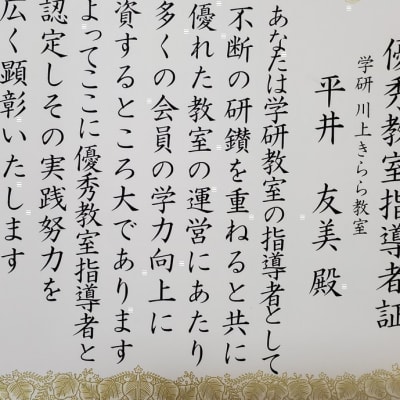 優秀教室指導者証
学研 川上きらら教室
平井 友美 殿
あなたは学研教室の指導者として
不断の研鑚を重ねると共に
優れた教室の運営にあたり
多くの会員の学力向上に
資するところ大であります
よってここに優秀教室指導者と
認定しその実践努力を
広く顕彰いたします